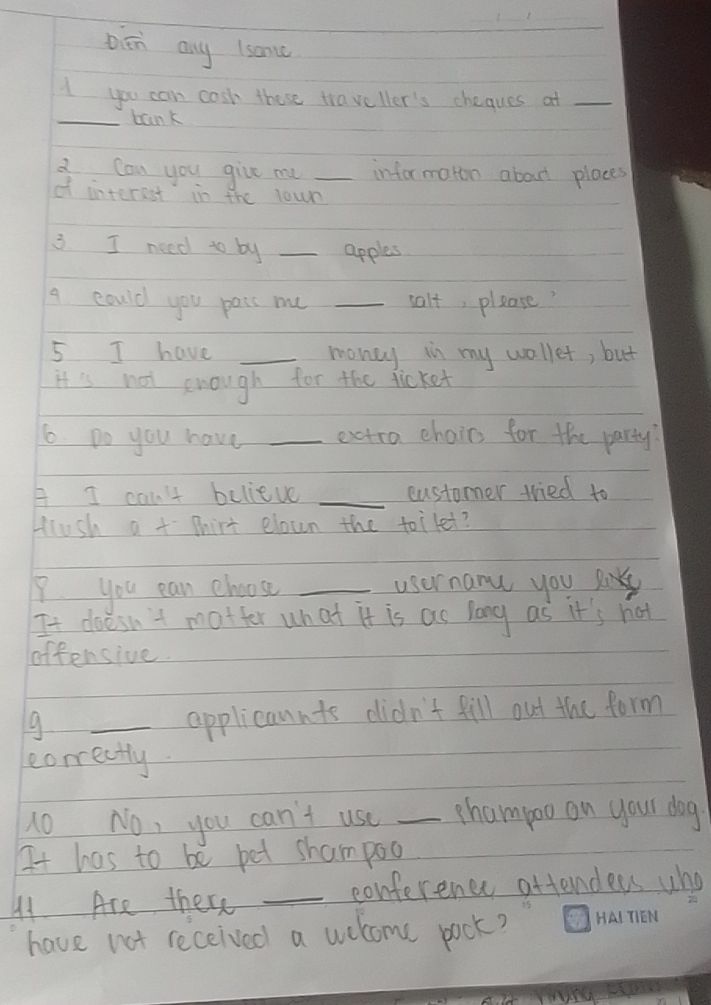 Điền any / some
1 you can cash these traveller's cheques at ___
___ bank
2 Can you give me ___ information about places
of interest in the town
3 I need to by ___ apples
4 could you pass me ___ salt, please?
5 I have ___ money in my wallet, but
it's not enough for the ticket
6. Do you have ___ extra chairs for the party?
7 I can't believe ___ customer tried to
flush a t-shirt down the toilet?
8. you can choose ___ username you like
It doesn't matter what it is as long as it's not
offensive.
9 ___ applicaunts didn't fill out the form
correctly.
10 No, you can't use ___ shampoo on your dog.
It has to be pet shampoo
11 Are there ___ conference attendees who
have not received a welcome pack?
HẢI TIẾN